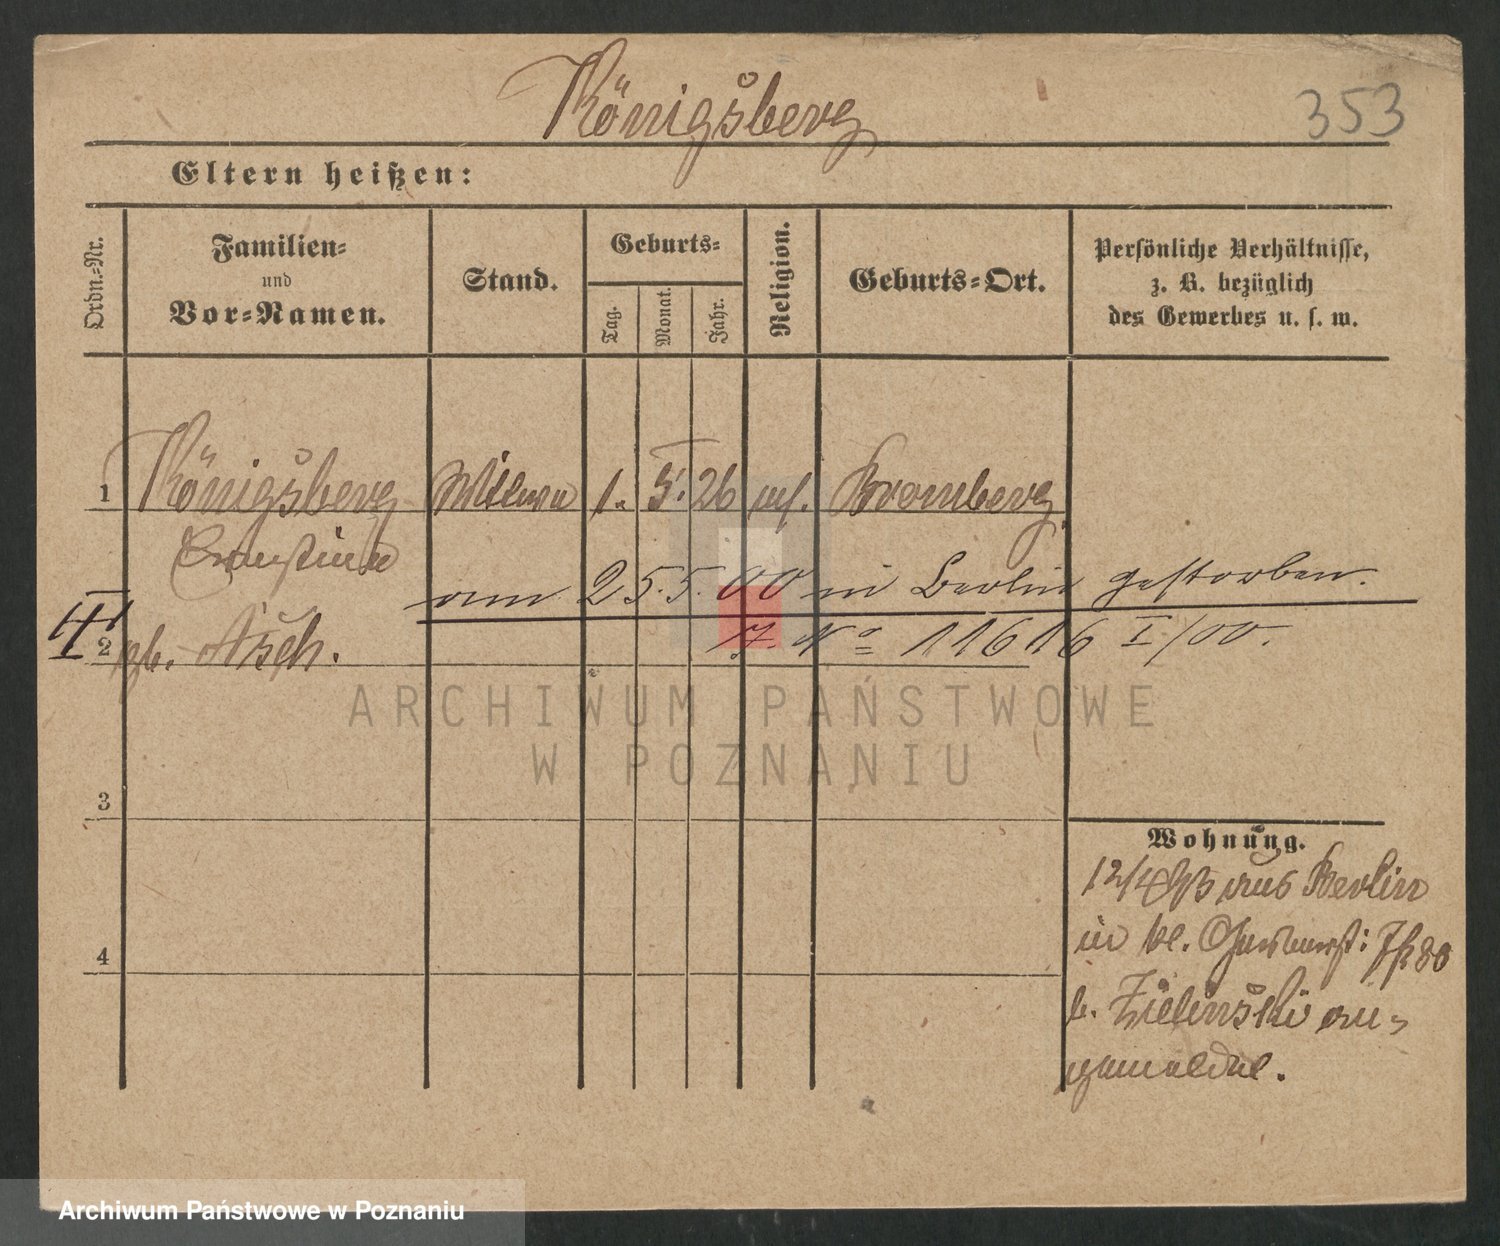 Königsberg
353
Eltern heißen:
Ordn.-Nr.
Familien-
und
Vor-Namen.
Stand.
Geburts-
Tag.
Monat.
Jahr.
Religion.
Geburts-Ort.
Persönliche Verhältnisse,
z. B. bezüglich
des Gewerbes u. s. w.
1 Königsberg Wittwe 1. 5. 26 mos. Bromberg
Ernestine
am 25.5.00 in Berlin gestorben.
II
2 gb. Asch.
J. No 11616 I/00.
ARCHIWUM PAŃSTWOWE
W POZNANIU
3
Wohnung.
12/4 93 aus Berlin
in kl. Gerberst: 7/8
b. Zielinski an-
gemeldet.
4
Archiwum Państwowe w Poznaniu